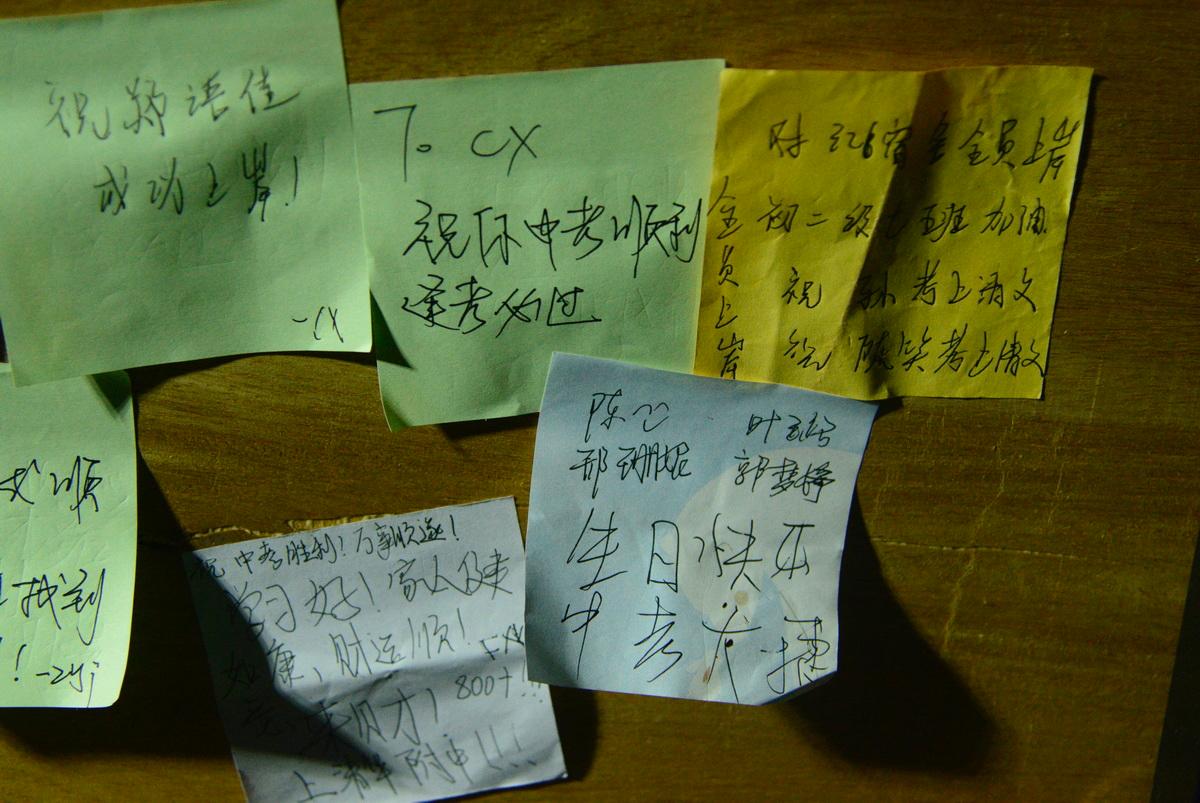 祝郑语佳
成功上岸！
-CX
To CX
祝你中考顺利
逢考必过
宿舍全员上岸
初二级七五班加油
祝 考上清文
祝陈笑考上清文
全员上岸
顺
找到
！-zyj
陈心 叶
邢珊妮 郭梦婷
生日快乐
中考大捷
祝中考胜利！万事顺遂！
学习好！家人健康
如康，财运顺！
800+!!!
上清华附中！！！